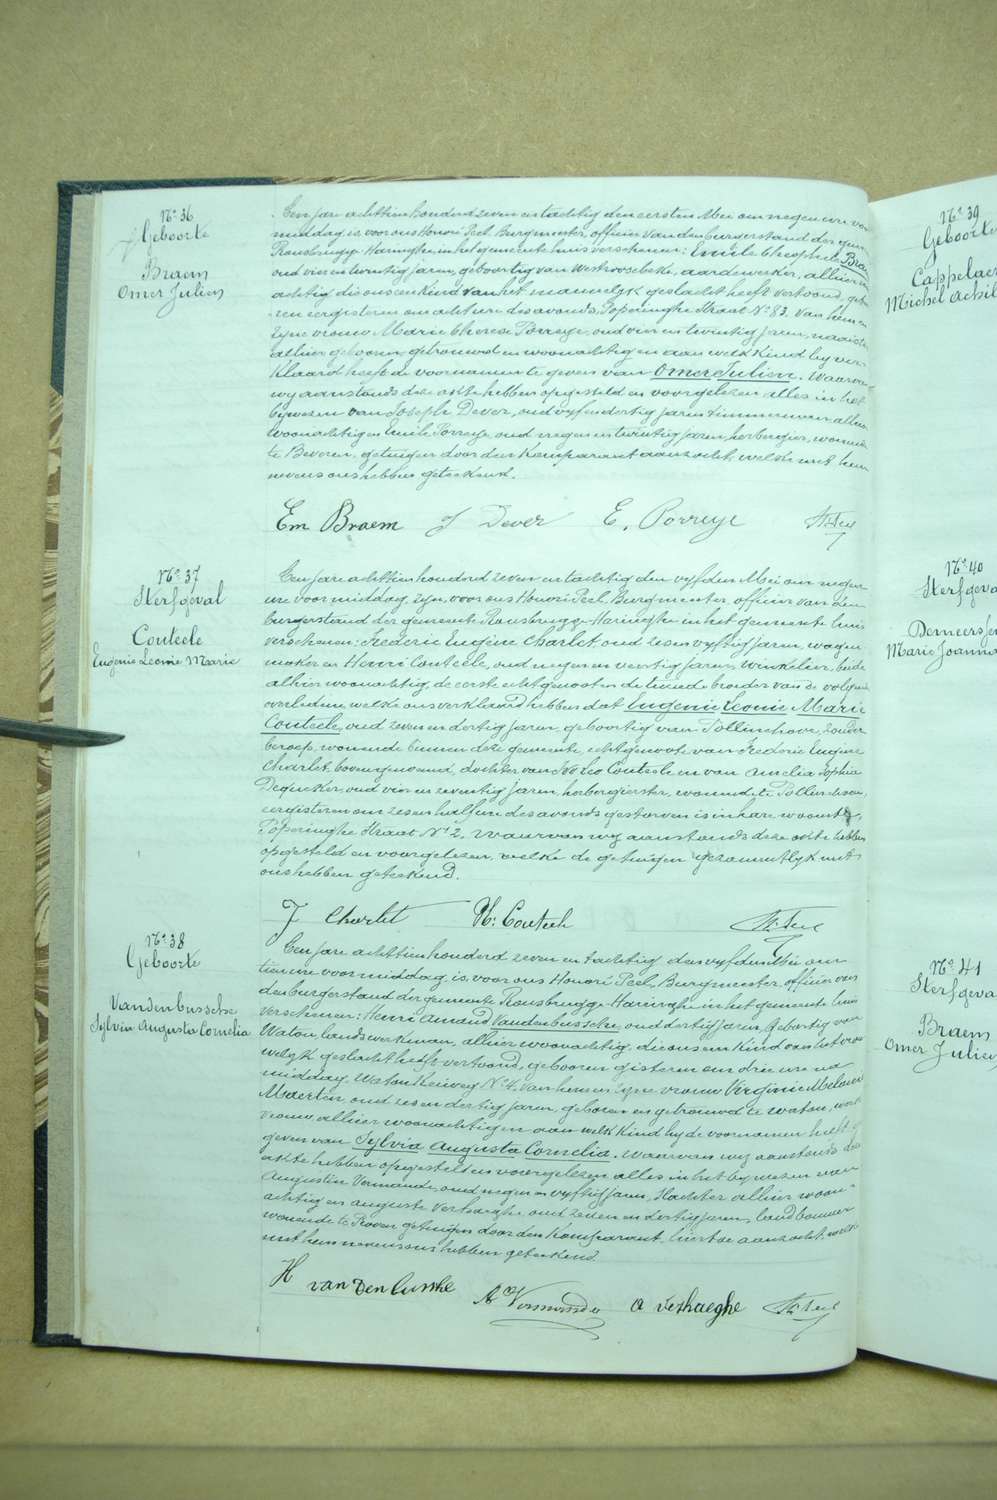 No 36
Geboorte
Braem
Omer Julien
Een jare achttien honderd zeven en tachtig den eersten Mei om negen ure voor
middag, is voor ons Honoré Peel, Burgmeester, officier van den burgerstand der gem
Rousbrugge-Haringhe in het gemeente huis verschenen: Emile Theophile Brae
oud vier en twintig jaren, geboortig van Westroosebeke, aardewerker, alhier
achtig die ons een kind van het mannelijk geslacht heeft vertoond, geb
ren eergisteren om acht ure des avonds, Poperinghe Straat No 83, van hem en
zijne vrouw Marie Therese Porreye, oud vier en twintig jaren, naaister
alhier geboren, getrouwd en woonachtig en aan welk kind hij ver
klaard heeft de voornamen te geven van Omer Julien. Waarvan
wij aanstonds deze akte hebben opgesteld en voorgelezen alles in het
bijwezen van Joseph Dever, oud vijf en dertig jaren timmerman alhier
woonachtig en Emile Porreye, oud negen en twintig jaren, herbergier, woonende
te Beveren, getuigen door den komparant aanzocht, welke met hem
nevens ons hebben geteekend.
Em Braem J Dever E. Porreye H. Peel
No 37
Sterfgeval
Couteele
Eugenie Leonie Marie
Een jare achttien honderd zeven en tachtig den vijfden Mei om negen
ure voor middag, zijn voor ons Honoré Peel, Burgmeester, officier van den
burgerstand der gemeente Rousbrugge-Haringhe in het gemeente huis
verschenen: Frederic Eugène Charlet, oud zes en vijftig jaren, wagen
maker en Henri Couteele, oud negen en veertig jaren, winkelier, beide
alhier woonachtig, de eerste echtgenoot en de tweede broeder van de volgende
overledene, welke ons verklaard hebben dat Eugenie Leonie Marie
Couteele, oud zeven en dertig jaren, geboortig van Pollinchove, zonder
beroep, woonende binnen deze gemeente, echtgenoote van Frederic Eugène
Charlet, bovengenoemd, dochter van Ivo Leo Couteele en van Amelia Sophia
Dequeker, oud vier en zeventig jaren, herbergierster, woonende te Pollinchove,
eergisteren om zes en half ure des avonds gestorven is in hare woonste,
Poperinghe Straat No 2. Waarvan wij aanstonds deze akte hebben
opgesteld en voorgelezen, welke de getuigen gezamentlijk met
ons hebben geteekend.
F Charlet H: Couteele H. Peel
No 38
Geboorte
Vandenbussche
Sylvia Augusta Cornelia
Een jare achttien honderd zeven en tachtig den vijfden Mei om
tien ure voormiddag, is voor ons Honoré Peel, Burgmeester, officier van
den burgerstand der gemeente Rousbrugge-Haringhe in het gemeente huis
verschenen: Henri Amand Vandenbussche, oud dertig jaren, geboortig van
Watou, landswerkman, alhier woonachtig, die ons een kind van het vrou
welijk geslacht heeft vertoond, geboren gisteren om drie ure na
middag, Watou Keiweg No 4, van hem en zijne vrouw Virginie Melanie
Maerten, oud zes en dertig jaren, geboren en getrouwd te Watou, werk
vrouw, alhier woonachtig en aan welk kind hij de voornamen heeft ge
geven van Sylvia Augusta Cornelia. Waarvan wij aanstonds deze
akte hebben opgesteld en voorgelezen alles in het bijwezen van
Augustin Vermande, oud negen en vijftig jaren, slachter alhier woon-
achtig en Auguste Verhaeghe, oud zeven en dertig jaren, landbouwer
woonende te Proven getuigen door den komparant, hiertoe aanzocht, welke
met hem nevens ons hebben geteekend.
H van Den bussche A Vermande A Verhaeghe H. Peel
No 39
Geboorte
Cappelaer
Michel Achil
No 40
Sterfgeva
Demeersse
Marie Joanna
No 41
Sterfgeva
Braem
Omer Julien